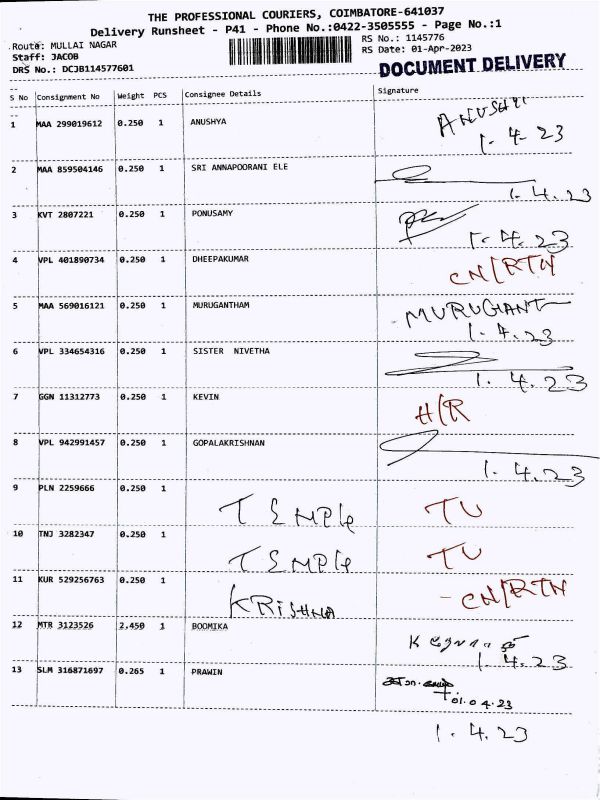 THE PROFESSIONAL COURIERS, COIMBATORE-641037
Delivery Runsheet - P41 - Phone No.:0422-3505555 - Page No.:1
Route: MULLAI NAGAR
RS No.: 1145776
Staff: JACOB
RS Date: 01-Apr-2023
DRS No.: DCJB114577601
DOCUMENT DELIVERY
S No Consignment No Weight PCS Consignee Details Signature
1 MAA 299019612 0.250 1 ANUSHYA ANUSHYA
1. 4. 23
2 MAA 859504146 0.250 1 SRI ANNAPOORANI ELE
1. 4. 23
3 KVT 2807221 0.250 1 PONUSAMY
1. 4. 23
4 VPL 401890734 0.250 1 DHEEPAKUMAR CN/RTN
5 MAA 569016121 0.250 1 MURUGANTHAM MURUGANT
1. 4. 23
6 VPL 334654316 0.250 1 SISTER NIVETHA
1. 4. 23
7 GGN 11312773 0.250 1 KEVIN H/R
8 VPL 942991457 0.250 1 GOPALAKRISHNAN
1. 4. 23
9 PLN 2259666 0.250 1 TEMPLE TU
10 TNJ 3282347 0.250 1 TEMPLE TU
11 KUR 529256763 0.250 1 KRISHNA - CN/RTN
12 MTR 3123526 2.450 1 BOOMIKA
1. 4. 23
13 SLM 316871697 0.265 1 PRAWIN
01.04.23
1. 4. 23